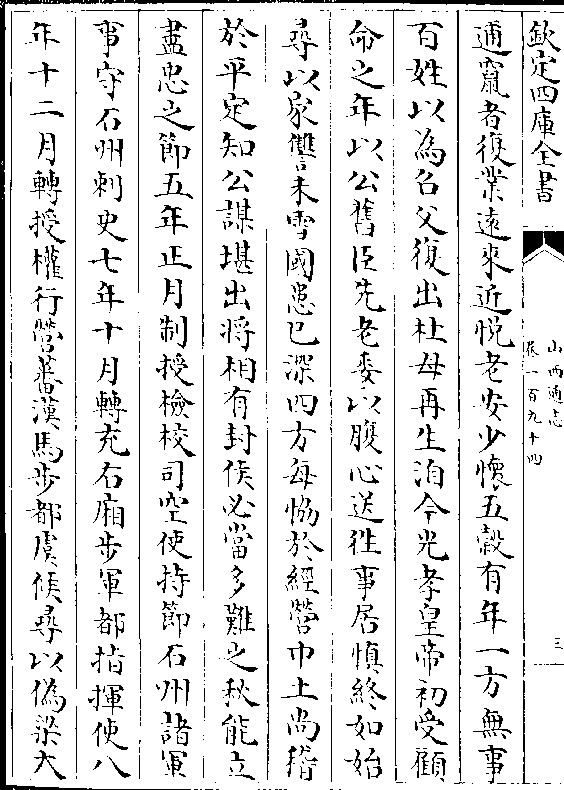 欽定四庫全書
山西通志
卷一百九十四
三
逋竄者復業遠來近悦老安少懷五穀有年一方無事
百姓以為召父復出杜母再生洎今光孝皇帝初受顧
命之年以公舊臣先老委以腹心送徃事居慎終如始
尋以家讐未雪國患已深四方每恊於經營中土尚稽
於平定知公謀堪出將相有封侯必當多難之秋能立
盡忠之節五年正月制授檢校司空使持節石州諸軍
事守石州刺史七年十月轉充右廂步軍都指揮使八
年十二月轉授權行營蕃漢馬步都虞候尋以偽梁大